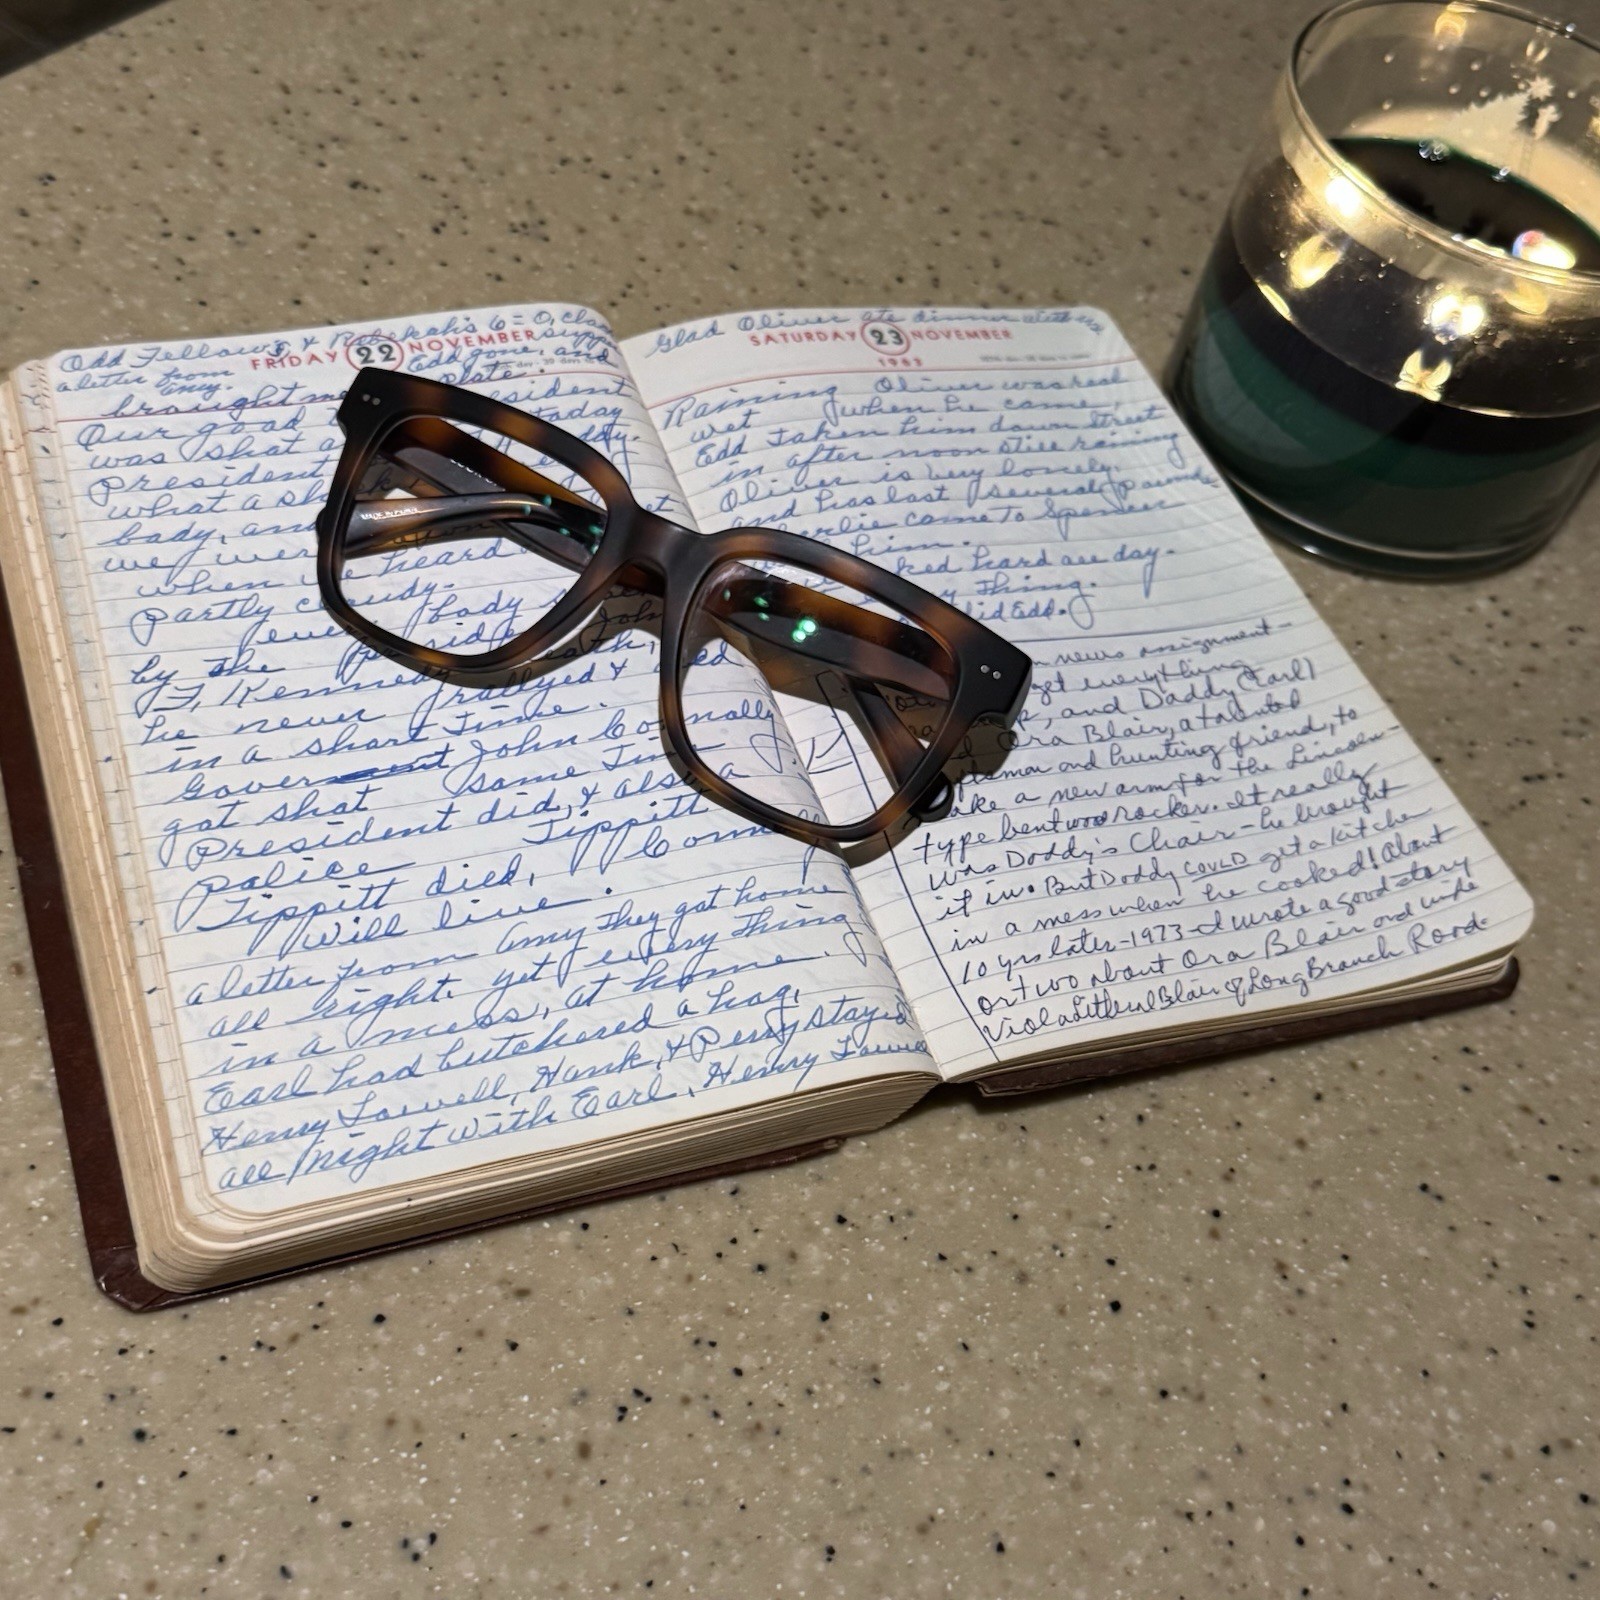 Odd Fellow's & Rebekah's 6 = 0, clam
supper
a letter from
Amy.
Edd gone, and
plate.
FRIDAY 22 NOVEMBER
brought me
Our good President
was shot today
President
what a
body, and
we were
when we heard
Partly cloudy.
every body
by the President John
F, Kennedy death,
he never rallyed &
in a short Time.
Governent John Connally
got shot same Time
President did, & also a
police Tippitt
Tippitt died, Connally
Will live.
a letter from Amy They got home
all right. yet every Thing
in a mess, at home.
Earl had butchered a hog,
Henry Lowell, Hank, & Perry stayed
all night with Earl, Henry Lowell
Glad Oliver ate dinner with me
SATURDAY 23 NOVEMBER
1963
Raining Oliver was real
wet when he came,
Edd taken him down Street
in after noon still raining
Oliver is very lonely.
and has lost several pounds
came To Spencer
him.
ked hard all day.
Thing.
did Edd.
news assignment-
get everything
, and Daddy (Earl)
Ora Blair, a talented
and hunting friend, to
make a new arm for the Lincoln-
type bentwood rocker. It really
was Daddy's Chair - he brought
it in. But Daddy COULD get a kitchen
in a mess when he cooked! About
10 yrs later-1973-I wrote a good story
or two about Ora Blair and wife
Viola Blair of Long Branch Road.